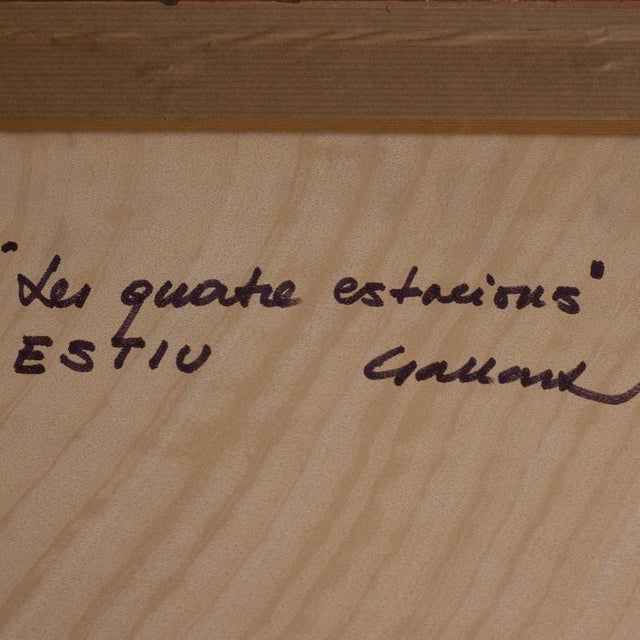 "Les quatre estacions"
ESTIU Gallard